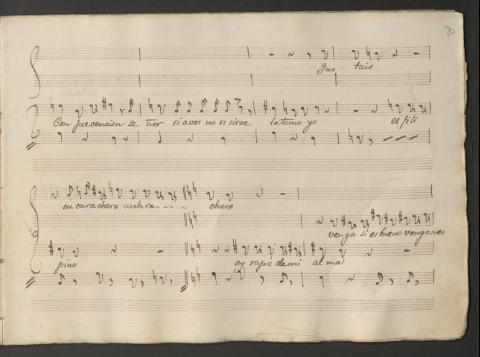 30
Gus tais
Con prevencion señor si a vos no os sirve la tomo yo el fili
en cara chero cuchara - - - chero
venga si es bueno venga
pino ay rape de mi alma